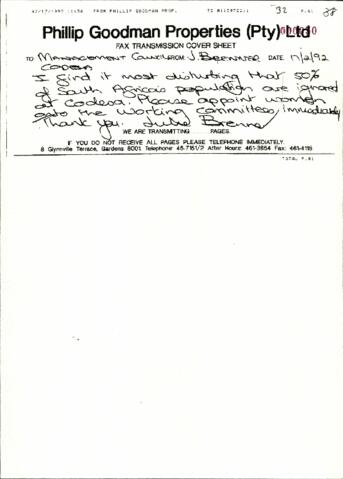 FROM PHILLIP GOODMAN PROP. 32 P.01 38
Phillip Goodman Properties (Pty) Ltd
FAX TRANSMISSION COVER SHEET
TO Management Council FROM J. DATE 17/2/92
Codesa
I find it most disturbing that 50%
of South Africa's population are ignored
at Codesa. Please appoint women
onto the working committees, immediately
Thank you. Julie
WE ARE TRANSMITTING PAGES.
IF YOU DO NOT RECEIVE ALL PAGES PLEASE TELEPHONE IMMEDIATELY.
8 Glynnville Terrace, Gardens 8001 Telephone: 45-7151/2 After Hours: 461-3654 Fax: 461-4118
TOTAL P.01